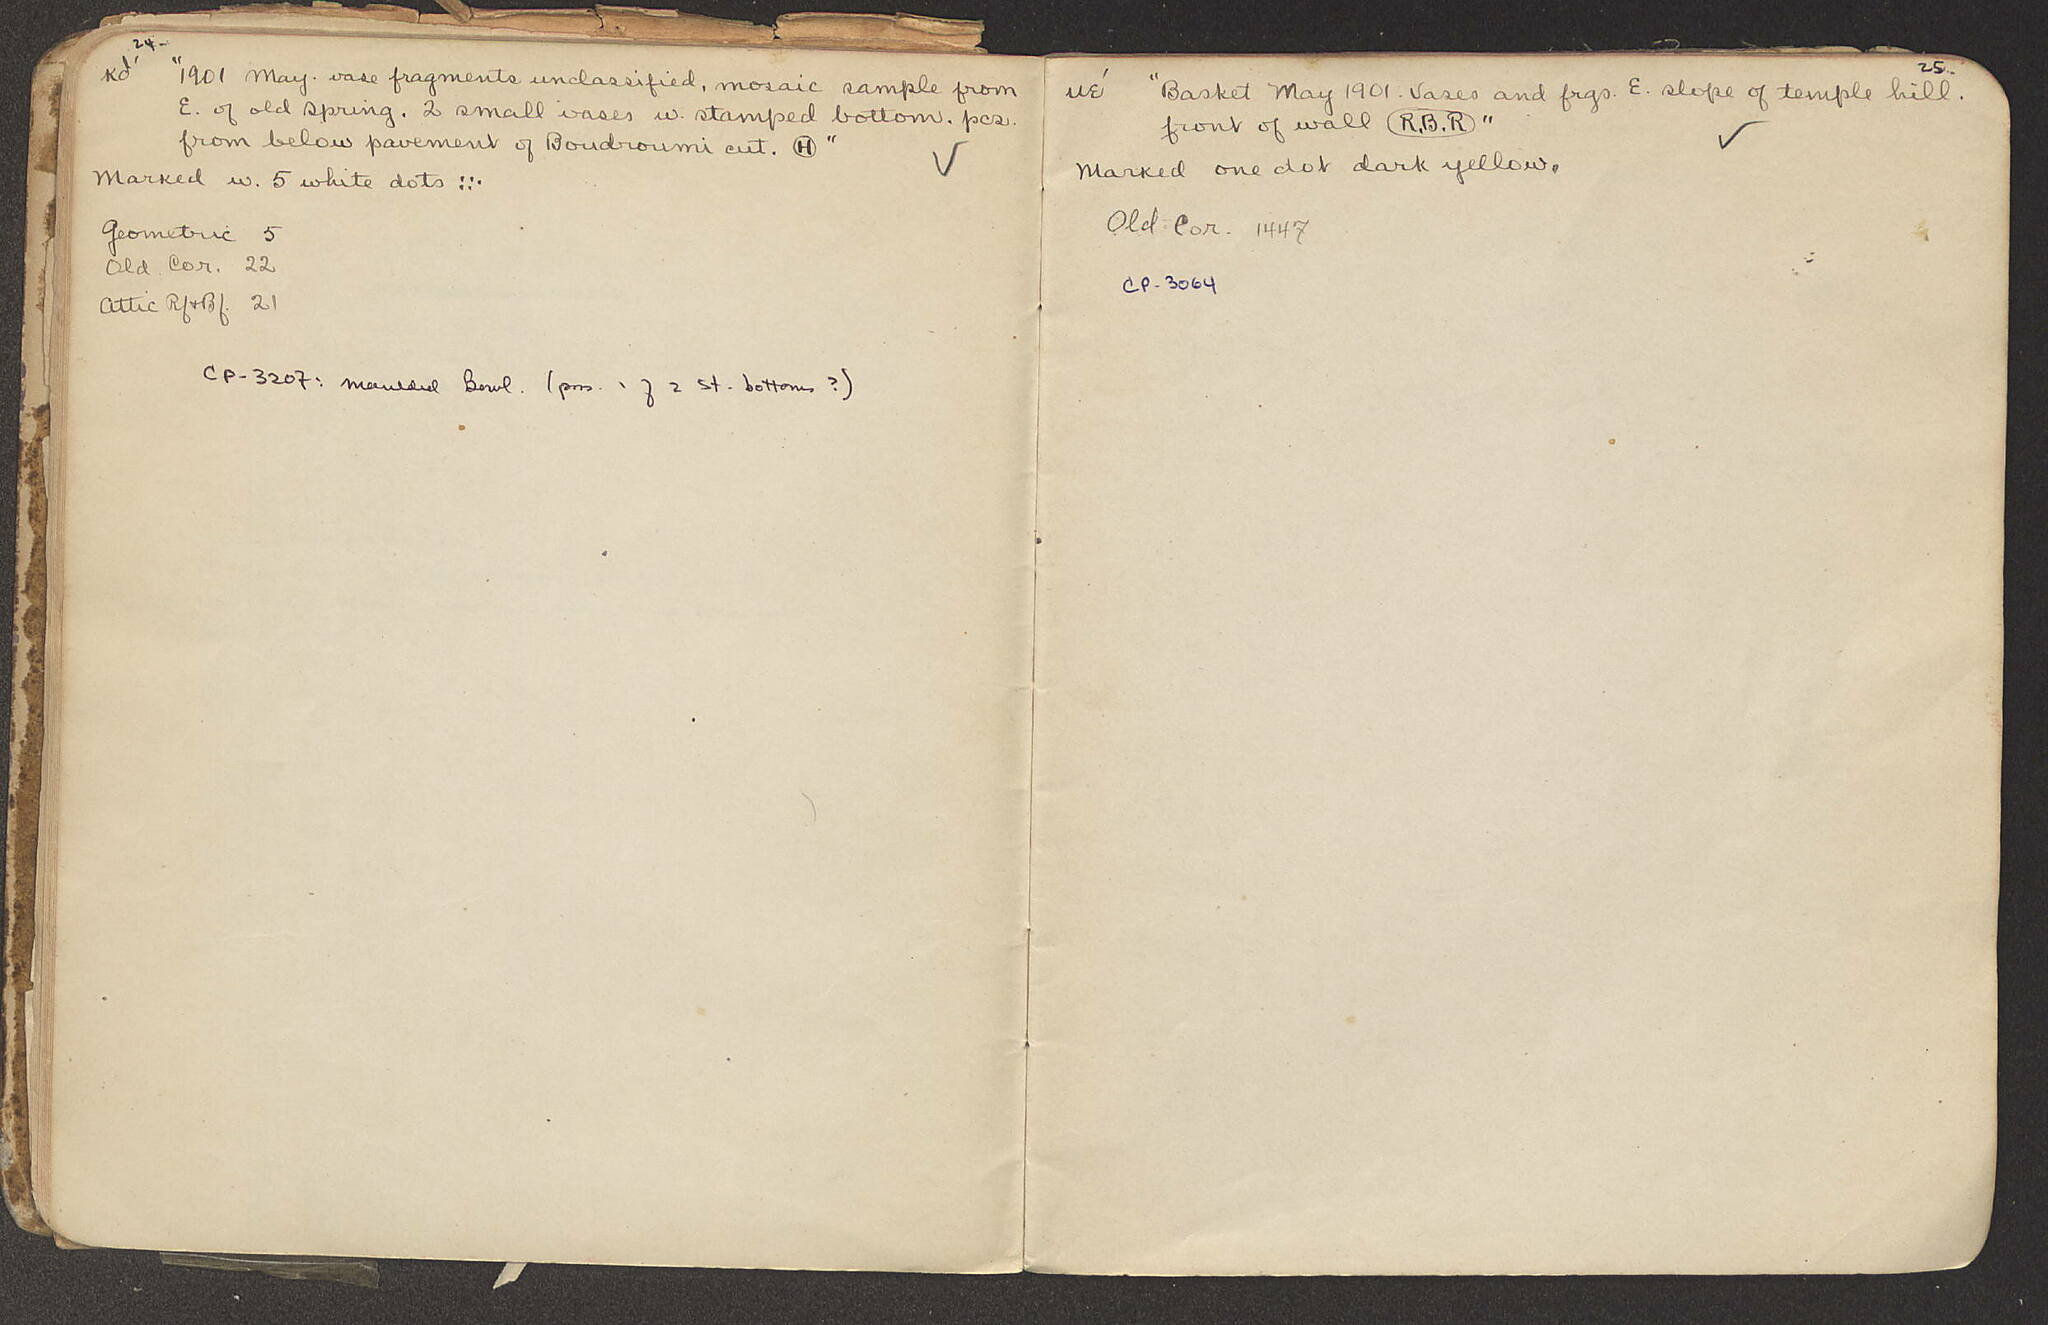 24-
κδ' "1901 May. vase fragments unclassified, mosaic sample from
E. of old spring. 2 small vases w. stamped bottom. pcs.
from below pavement of Boudroumi cut. Ⓗ"
✓
Marked w. 5 white dots
Geometric 5
Old Cor. 22
Attic Rf+Bf. 21
CP-3207: Moulded Bowl. (pos. 1 of 2 st. bottoms?)
25.
κε' "Basket May 1901. Vases and frgs. E. slope of temple hill.
front of wall (R.B.R)"
✓
Marked one dot dark yellow.
Old Cor. 1447
CP-3064